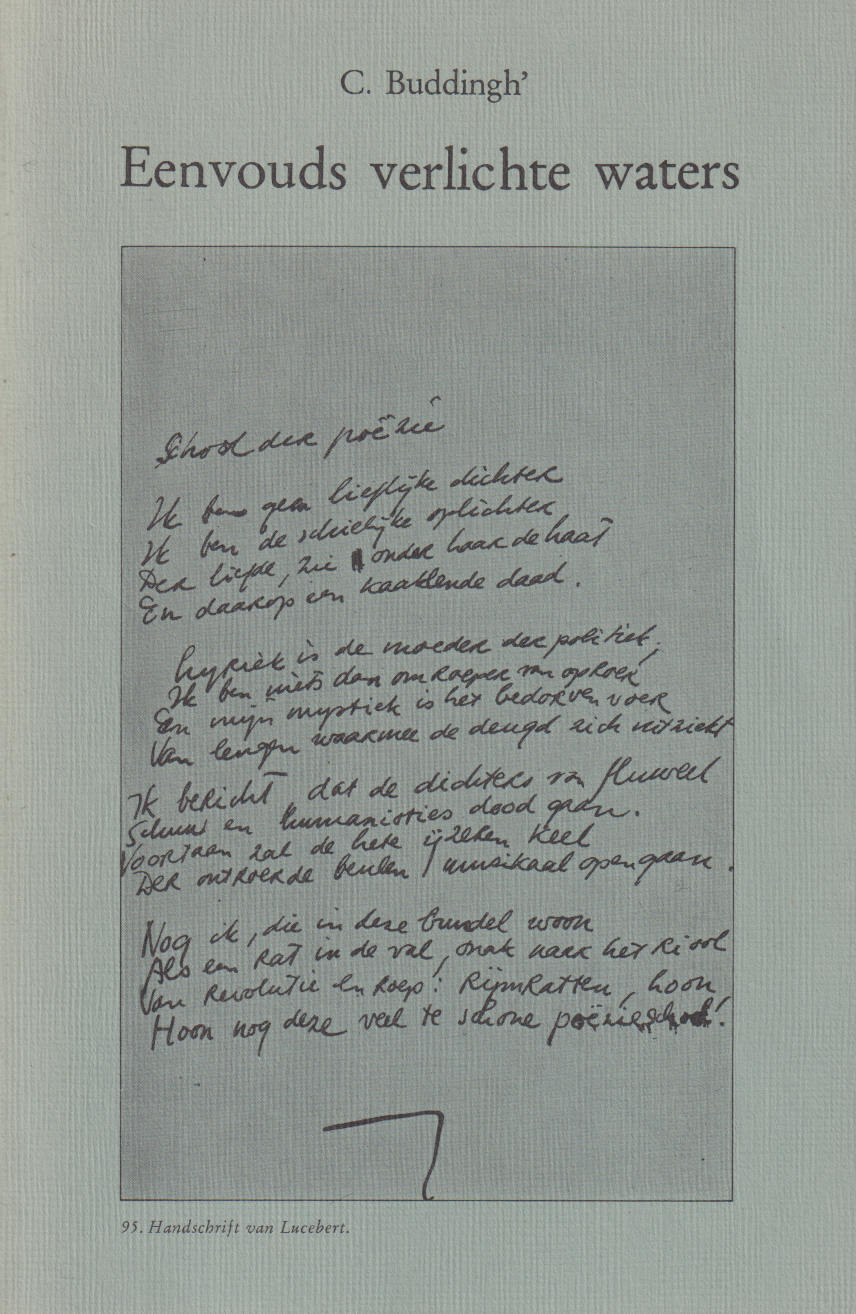 C. Buddingh’
Eenvouds verlichte waters
School der poëzie
Ik ben geen lieflijke dichter
Ik ben de schielijke oplichter
Der liefde, zie onder haar de haat
En daarop een kaaklende daad.
Lyriek is de moeder der politiek,
Ik ben niets dan omroeper van oproer
En mijn mystiek is het bedorven voer
Van leugen waarmee de deugd zich uitziekt
Ik bericht dat de dichters van fluweel
Schuw en humanisties dood gaan.
Voortaan zal de hete ijzeren keel
Der ontroerde beulen muzikaal opengaan.
Nog ik, die in deze bundel woon
Als een rat in de val, snak naar het riool
Van revolutie en roep: Rijmratten, hoon
Hoon nog deze veel te schone poëzieschool!
95. Handschrift van Lucebert.